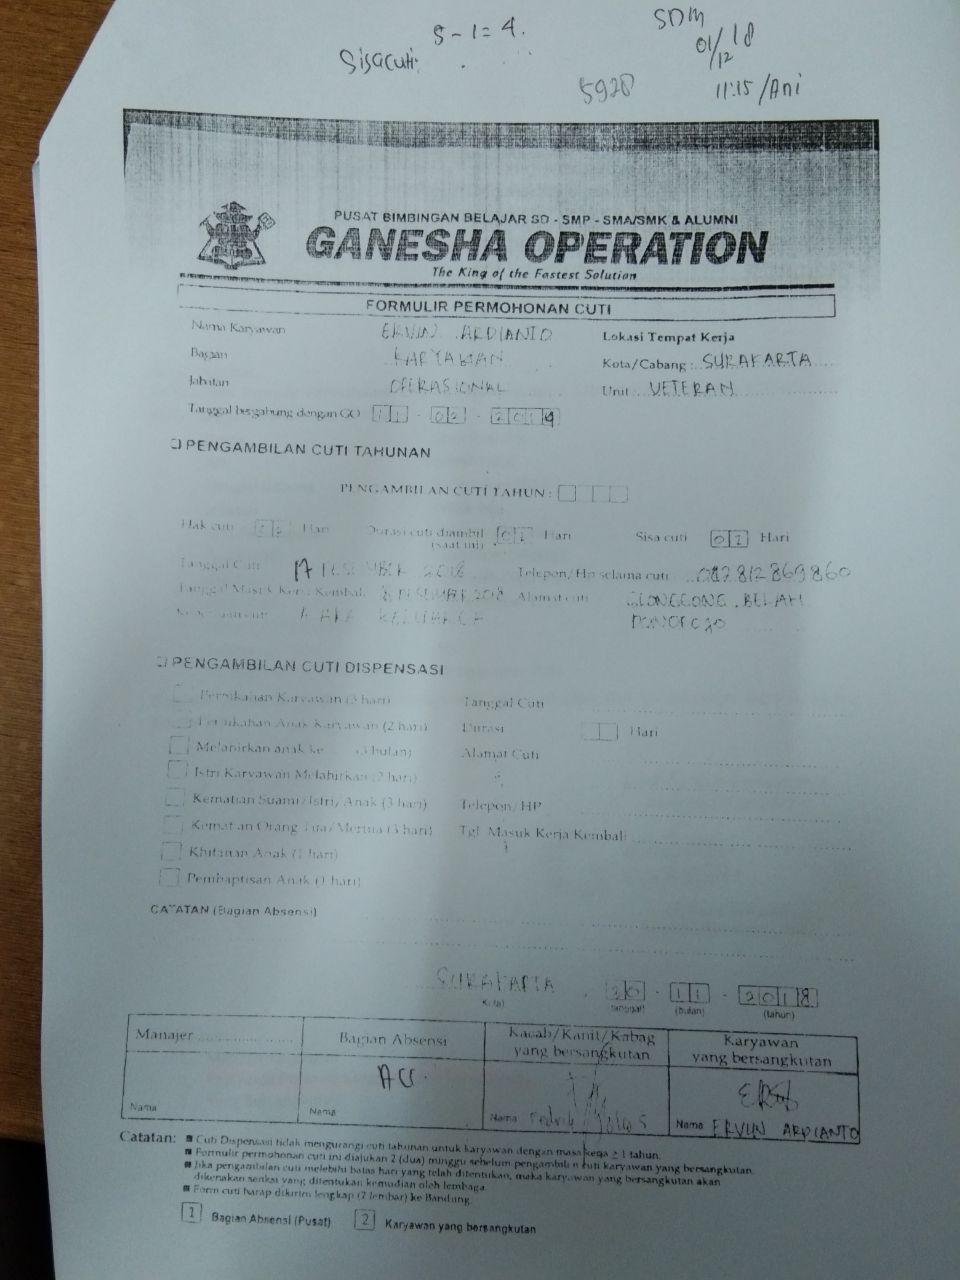 5 - 1 = 4.
SDM
01/12 18
Sisacuti
5920
11:15 / Ani
PUSAT BIMBINGAN BELAJAR SD - SMP - SMA/SMK & ALUMNI
GANESHA OPERATION
The King of the Fastest Solution
FORMULIR PERMOHONAN CUTI
Nama Karyawan ERVIN ARDIANTO Lokasi Tempat Kerja
Bagian KARYAWAN Kota/Cabang : SURAKARTA
Jabatan OPERASIONAL Unit : VETERAN
Tanggal bergabung dengan GO 11 - 02 - 2014
PENGAMBILAN CUTI TAHUNAN
PENGAMBILAN CUTI TAHUN :
Hak cuti 12 Hari Durasi cuti diambil (saat ini) 01 Hari Sisa cuti Hari
Tanggal Cuti 17 DESEMBER 2018 Telepon/Hp selama cuti 082812869860
Tanggal Masuk Kerja Kembali DESEMBER 2018 Alamat cuti GLONGGONG, BELAH
KELUARGA PONOROGO
PENGAMBILAN CUTI DISPENSASI
Pernikahan Karyawan (3 hari) Tanggal Cuti
Pernikahan Anak Karyawan (2 hari) Durasi Hari
Melahirkan anak ke (3 bulan) Alamat Cuti
Istri Karyawan Melahirkan (2 hari)
Kematian Suami/Istri/Anak (3 hari) Telepon/HP
Kematian Orang Tua/Mertua (3 hari) Tgl Masuk Kerja Kembali
Khitanan Anak (1 hari)
Pembaptisan Anak (1 hari)
CATATAN (Bagian Absensi)
SURAKARTA, 20 - 11 - 2018
(kota) (tanggal) (bulan) (tahun)
Manajer Bagian Absensi Kacab/Kanit/Kabag yang bersangkutan Karyawan yang bersangkutan
ACC
Nama Nama Nama Nama ERVIN ARDIANTO
Catatan: Cuti Dispensasi tidak mengurangi cuti tahunan untuk karyawan dengan masa kerja ≥ 1 tahun.
Formulir permohonan cuti ini diajukan 2 (dua) minggu sebelum pengambilan cuti karyawan yang bersangkutan.
Jika pengambilan cuti melebihi batas hari yang telah ditentukan, maka karyawan yang bersangkutan akan
dikenakan sanksi yang ditentukan kemudian oleh lembaga.
Form cuti harap dikirim lengkap (2 lembar) ke Bandung.
1 Bagian Absensi (Pusat) 2 Karyawan yang bersangkutan